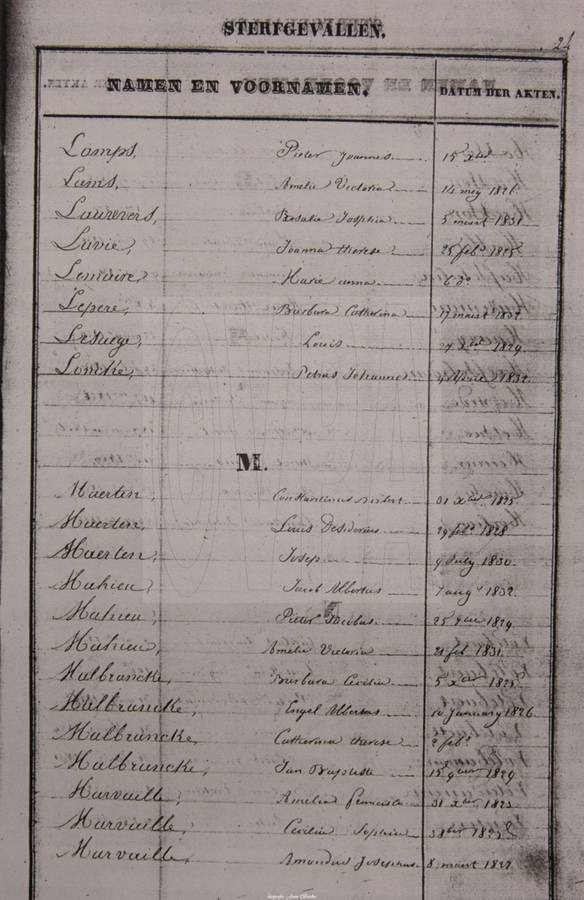 STERFGEVALLEN.
NAMEN EN VOORNAMEN. DATUM DER AKTEN.
Lamps, Pieter Joannes 15
Lams, Amelie Victoria 14 mey 1826.
Laurevers, Rosalia Josephia 5 maart 1831
Lavie, Joanna therese 25 feb.
Lemaire, Marie anna
Lepere, Barbara Catherina 17 maart
Louis 1829.
Loncke, Petrus Johannes 4 April 1832.
M.
Maerten, Constantinus 31 Xber
Maerten, Louis Desiderius 29 feb. 1828
Maerten, Josep 9 July 1830.
Mahieu, Jacob Albertus 7 augt 1832.
Mahieu, Pieter Jacobus 25 1829.
Mahieu, Amelie Victoria 21 feb 1831.
Malbrancke, Barbara Cecilia 5 Xber
Malbrancke, Engel Albertus 10 January 1826.
Malbrancke, Catherina therese 2 feb.
Malbrancke, Jan Baptiste 15 1829
Marvaille, Amelia 31 Xber
Marvaille, Cecilia Sophia
Marvaille, Amandus Josephus 8 maart